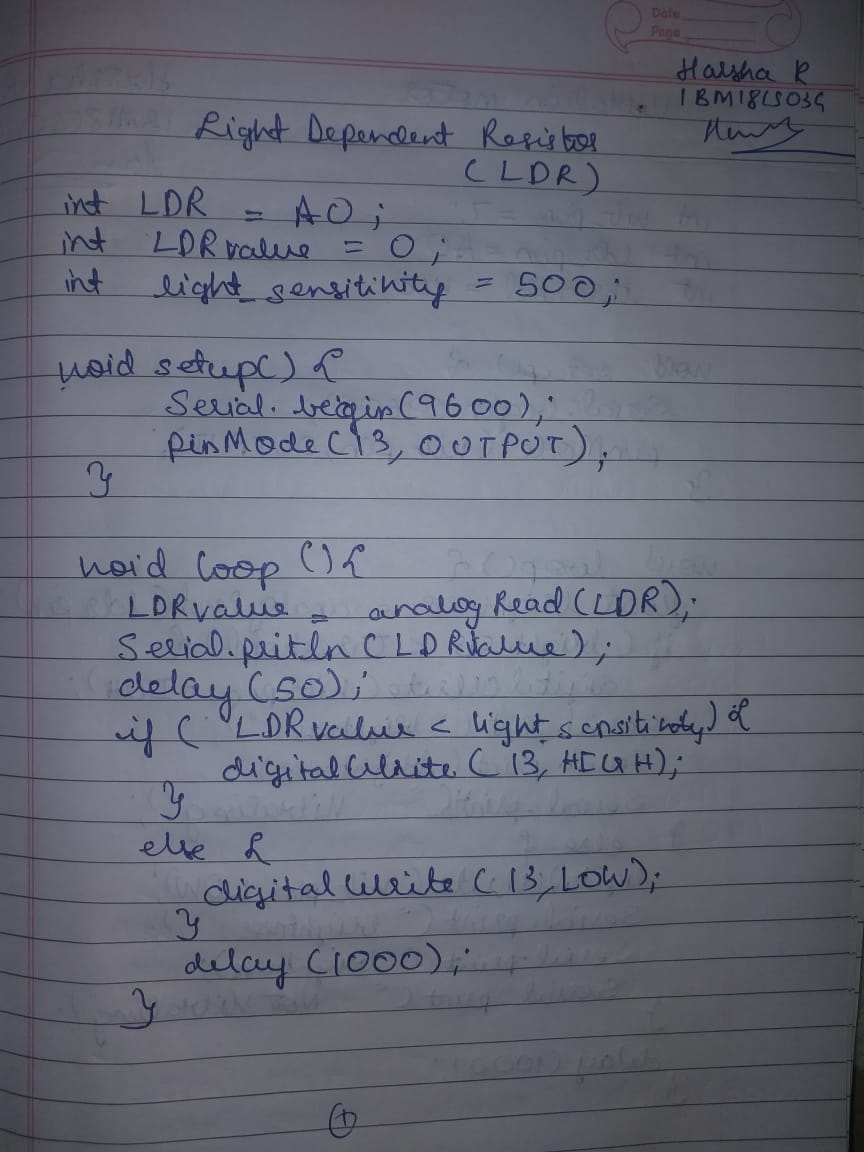 Date
Page
Harsha R
1BM18CS034
Light Dependent Resistor
(LDR)
int LDR = A0;
int LDRvalue = 0;
int light_sensitivity = 500;
void setup() {
Serial.begin(9600);
pinMode(13, OUTPUT);
}
void loop () {
LDRvalue = analogRead(LDR);
Serial.pritln(LDRvalue);
delay(50);
if ( LDRvalue < light_sensitivity) {
digitalWrite( 13, HIGH);
}
else {
digitalWrite( 13, LOW);
}
delay(1000);
}